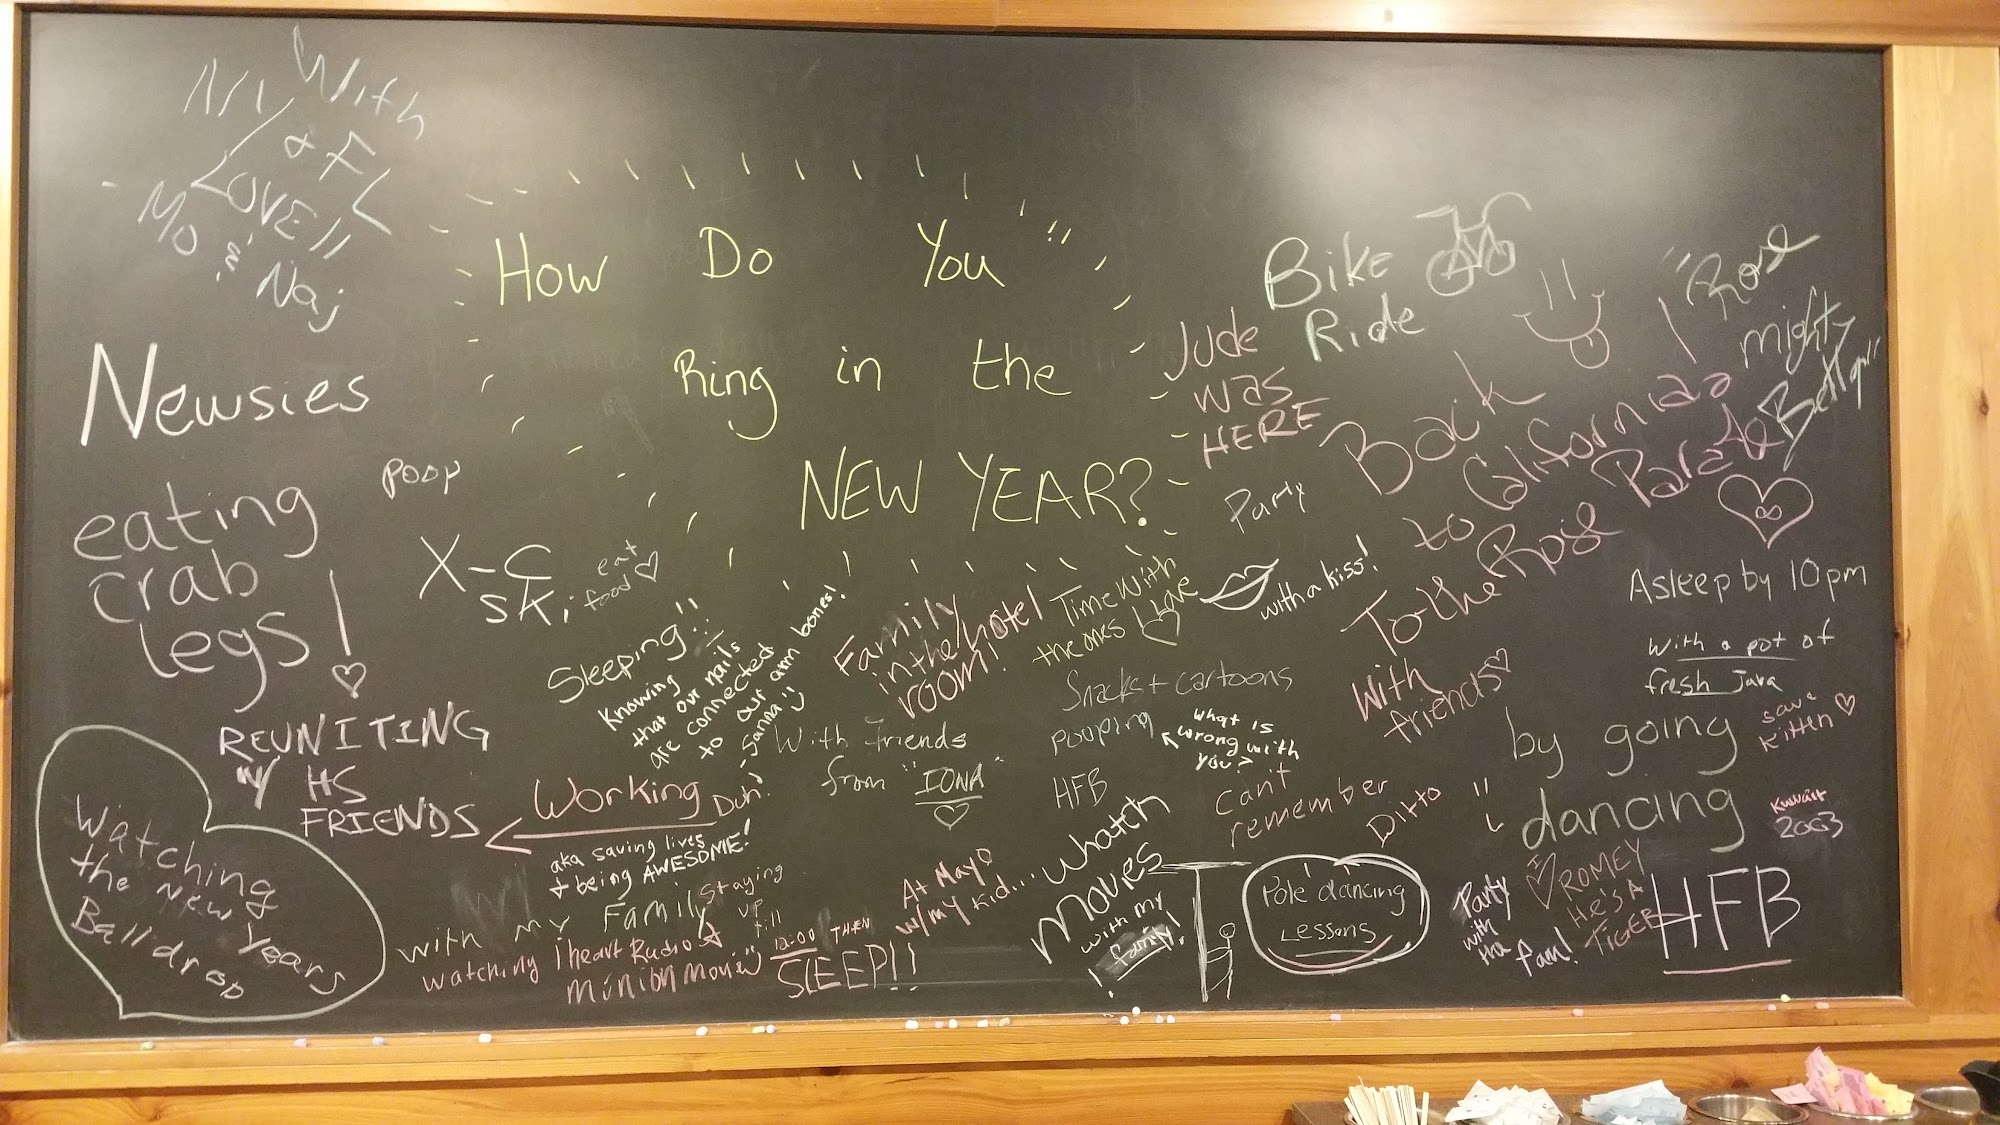 With
LOVE!!
Mo & Naj
How Do You
Ring in the
NEW YEAR?
Newsies
poop
eating
crab
legs!
X-C
ski
eat
food
REUNITING
w/ HS
FRIENDS
Watching
the New Years
Ball drop
Sleeping!!
Knowing
that our nails
are connected
to our arm bones!
-Sanna
Working
Duh!
aka saving lives
+ being AWESOME!
with my Family
watching iheart Radio +
minion movie
staying
up
till
12:00 THEN
SLEEP!!
Family
in the hotel
room!
With friends
from "IONA"
Time With
the ones I Love
Snacks + cartoons
pooping
What is
wrong with
you?
HFB
At Mayo
w/my kid...
Whatch
Movies
with my
family!
Bike
Ride
Jude
was
HERE
Party
with a kiss!
Back
to California
To the Rose Parade
With
friends
"Rose
might
Asleep by 10pm
With a pot of
fresh Java
save
Kitten
by going
dancing
can't
remember
Ditto
Kuwait
2003
Pole dancing
Lessons
Party
with
tha
fam!
ROMEY
He's A
TIGER
HFB